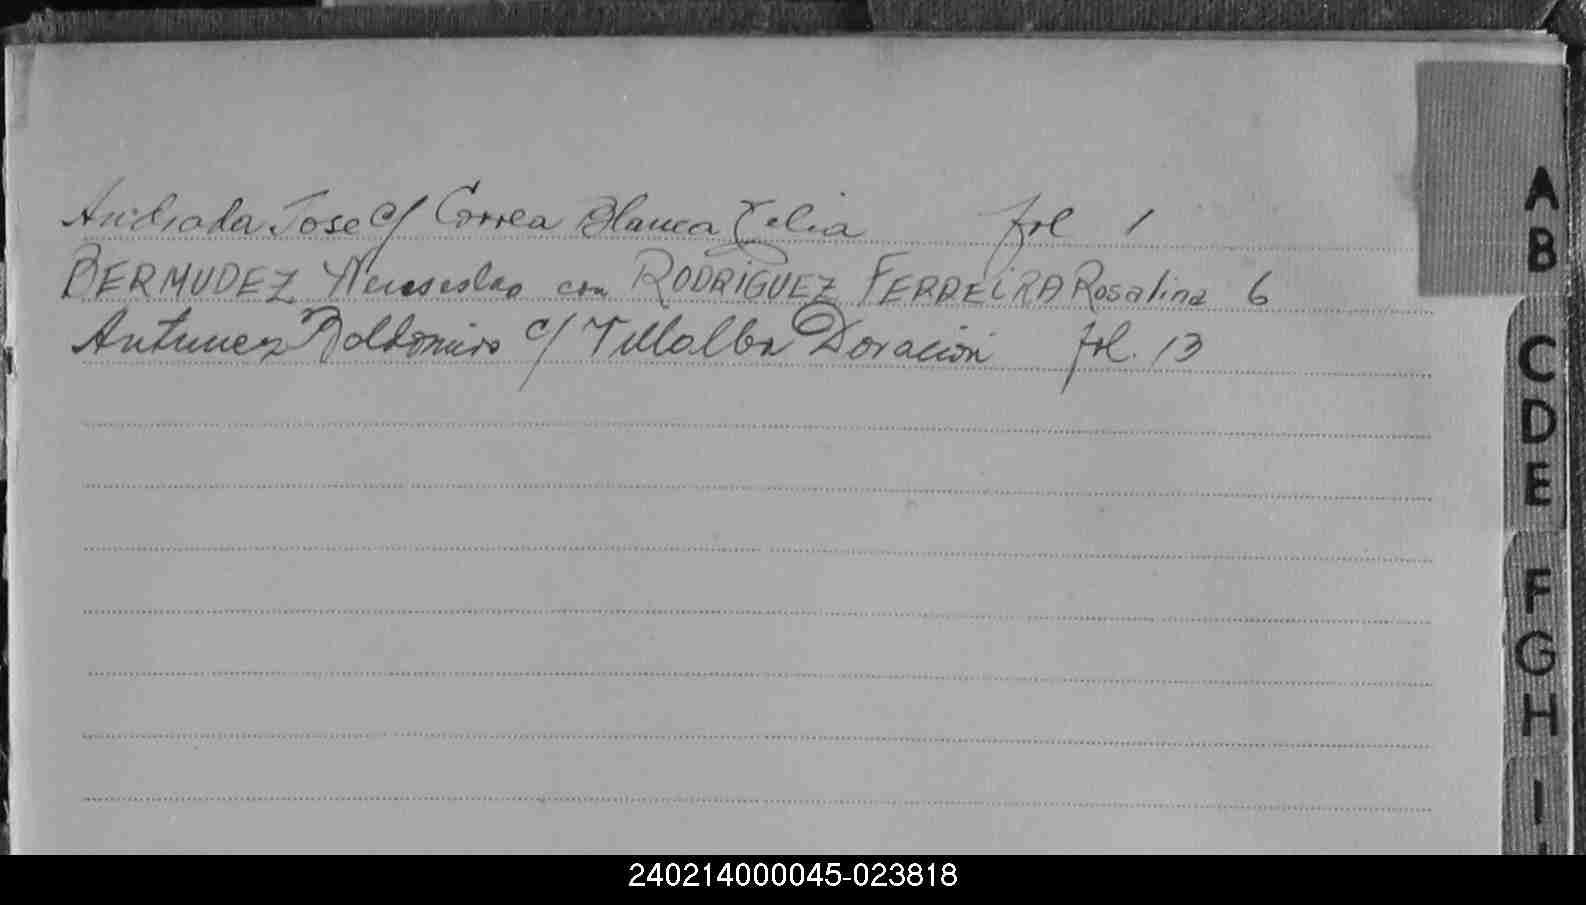 Andrada Jose c/ Correa Blanca Zelia fol 1
BERMUDEZ Wenseslao con RODRIGUEZ FERREIRA Rosalina 6
Antunez Baldomiro c/ Villalba Doracion fol. 13
A
B
C
D
E
F
G
H
I
240214000045-023818